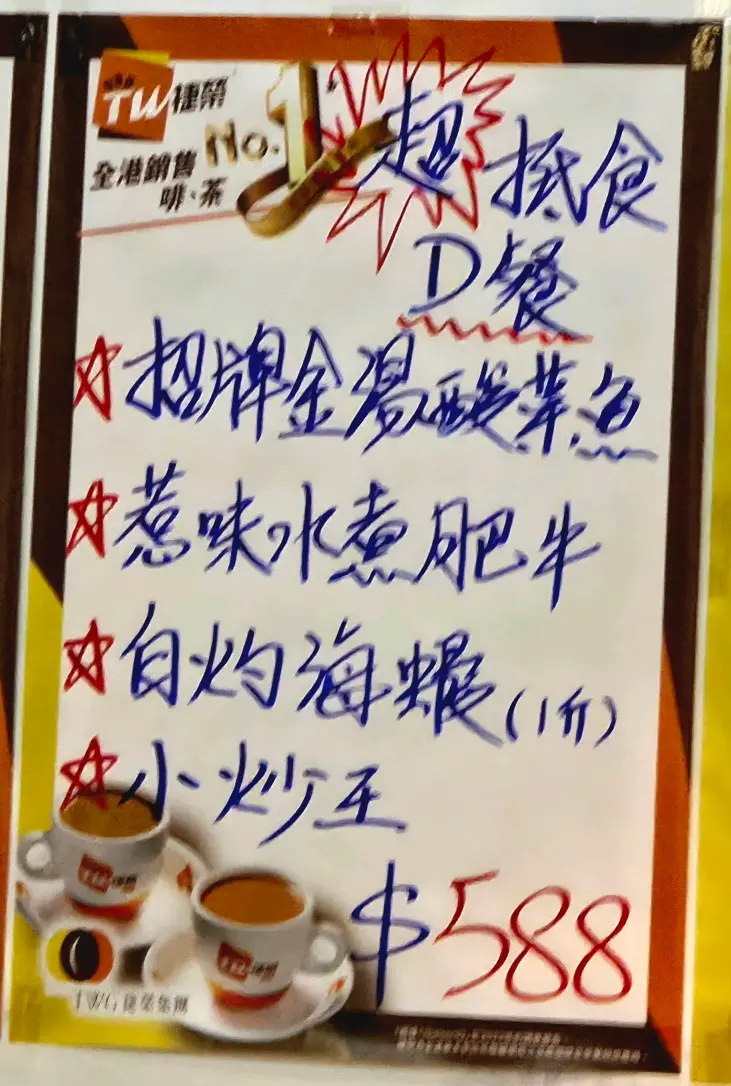 TW捷榮
No.1
全港銷售
啡、茶
超抵食
D餐
招牌金湯酸菜魚
惹味水煮肥牛
白灼海蝦(1斤)
小炒王
$588
TW捷榮
TW捷榮
TWG 捷榮集團